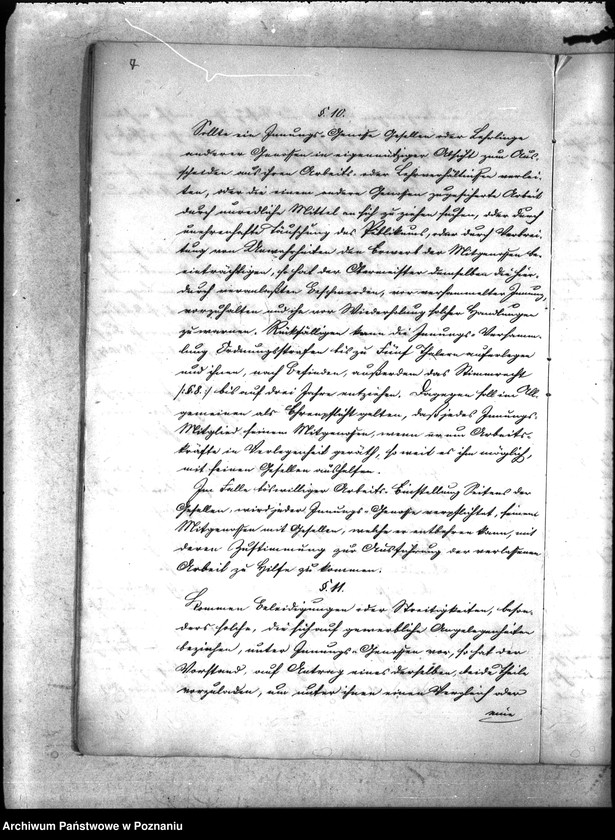 4
§. 10.
Sollte ein Innungs-Genosse Gesellen oder Lehrlinge
anderer Genossen in eigennütziger Absicht zum Aus-
scheiden aus ihren Arbeits- oder Lehrverhältnissen verlei-
ten, oder die einem andern Genossen zugesicherte Arbeit
durch unredliche Mittel an sich zu ziehen suchen, oder durch
unehrenhafte Täuschung des Publikums, oder durch Verbrei-
tung von Unwahrheiten den Erwerb der Mitgenossen be-
einträchtigen, so hat der Obermeister demselben die hier-
durch veranlaßten Beschwerden, vor versammelter Innung,
vorzuhalten und ihn vor Wiederholung solcher Handlungen
zu warnen. Rückfälligen kann die Innungs-Versamm-
lung Ordnungsstrafen bis zu Fünf Thalern auferlegen
und ihnen, nach Befinden, außerdem das Stimmrecht
/:§ 8:/ bis auf drei Jahre entziehen. Dagegen soll im All-
gemeinen als Ehrenpflicht gelten, daß jedes Innungs-
Mitglied seinen Mitgenossen, wenn er um Arbeits-
kräfte in Verlegenheit geräth, so weit es ihm möglich,
mit seinen Gesellen aushelfen.
Im Falle böswilliger Arbeits-Einstellung Seitens der
Gesellen, wird jeder Innungs-Genosse verpflichtet, seinen
Mitgenossen mit Gesellen, welche er entbehren kann, mit
deren Zustimmung zur Ausführung der verlassenen
Arbeit zu Hilfe zu kommen.
§. 11.
Kommen Beleidigungen oder Streitigkeiten, beson-
ders solche, die sich auf gewerbliche Angelegenheiten
beziehen, unter Innungs-Genossen vor, so hat der
Vorstand, auf Antrag eines derselben, beide Theile
vorzuladen, um unter ihnen einen Vergleich oder
eine
Archiwum Państwowe w Poznaniu